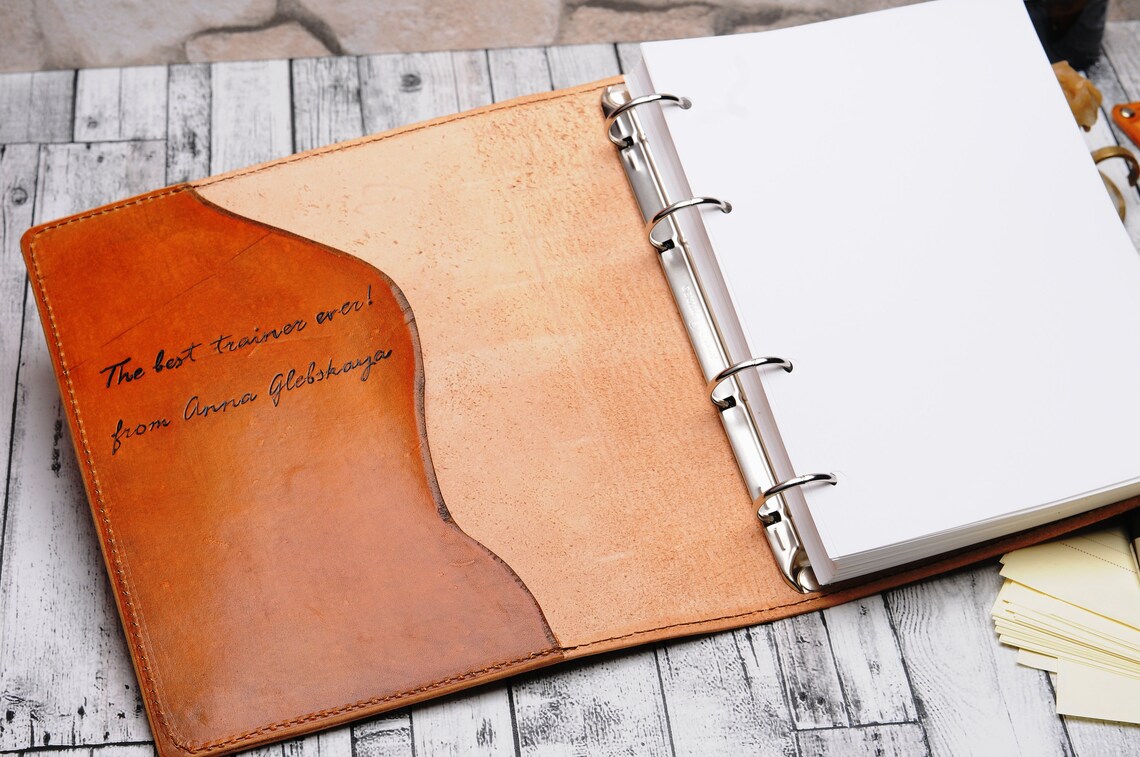 The best trainer ever!
from Anna Glebskaya